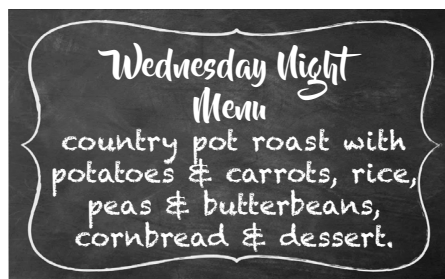 Wednesday Night
Menu
country pot roast with
potatoes & carrots, rice,
peas & butterbeans,
cornbread & dessert.